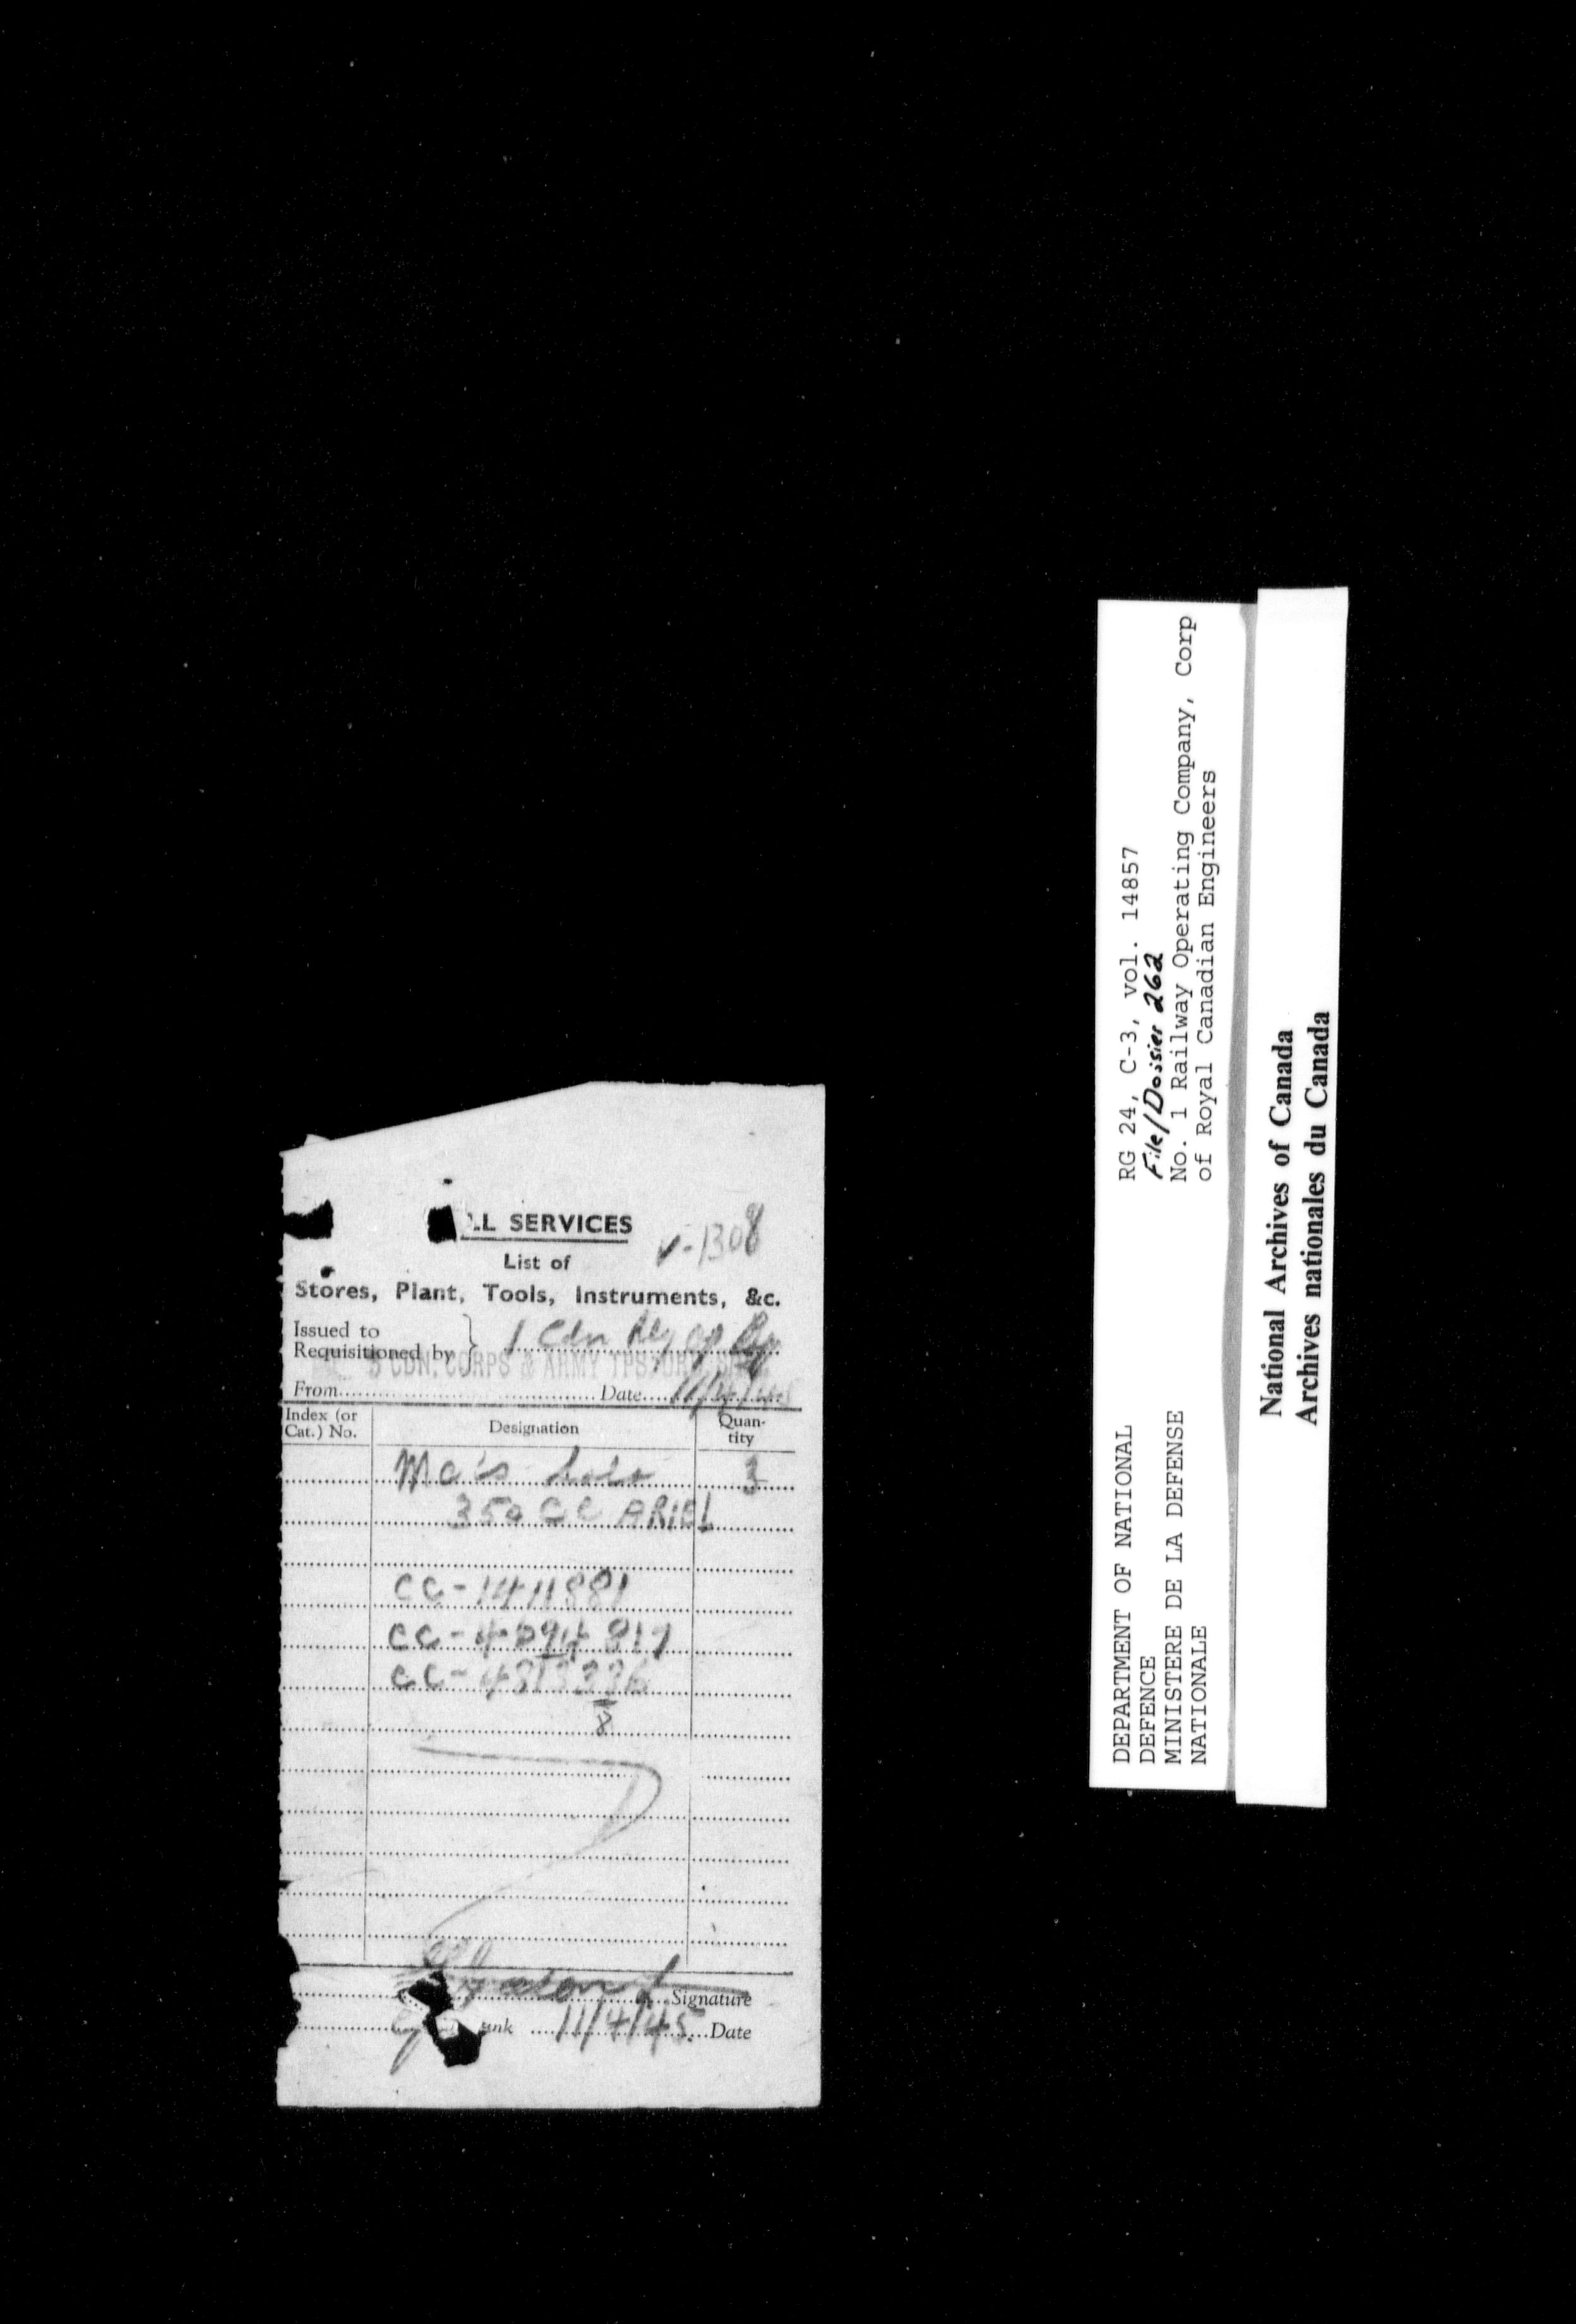 LL SERVICES
V-1308
List of
Stores, Plant, Tools, Instruments, &c.
Issued to
Requisitioned by } 1 Cdn Rly Op Coy
5 CDN. CORPS & ARMY TPS
From Date 11/4/45
Index (or Cat.) No. Designation Quantity
Mc's Solo 3
350 CC ARIEL
CC-1411881
CC-4894817
CC-4813336
8
Signature
ank 11/4/45 Date
RG 24, C-3, vol. 14857
File/Dossier 262
No. 1 Railway Operating Company, Corp
of Royal Canadian Engineers
DEPARTMENT OF NATIONAL
DEFENCE
MINISTERE DE LA DEFENSE
NATIONALE
National Archives of Canada
Archives nationales du Canada